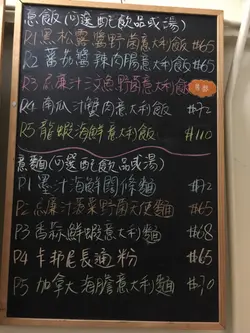 意飯(可選配飲品或湯)
R1 黑松露醬野菌意大利飯 $65
R2 蕃茄醬辣肉腸意大利飯 $65
R3 忌廉汁三文魚野菌意大利飯
R4 南瓜汁蟹肉意大利飯 $72
R5 龍蝦海鮮意大利飯 $110
意麵(可選配飲品或湯)
P1 墨汁海鮮闊條麵 $72
P2 忌廉汁菠菜野菌天使麵 $65
P3 香蒜鮮蝦意大利麵 $68
P4 卡邦尼長通粉 $65
P5 加拿大海膽意大利麵 $70